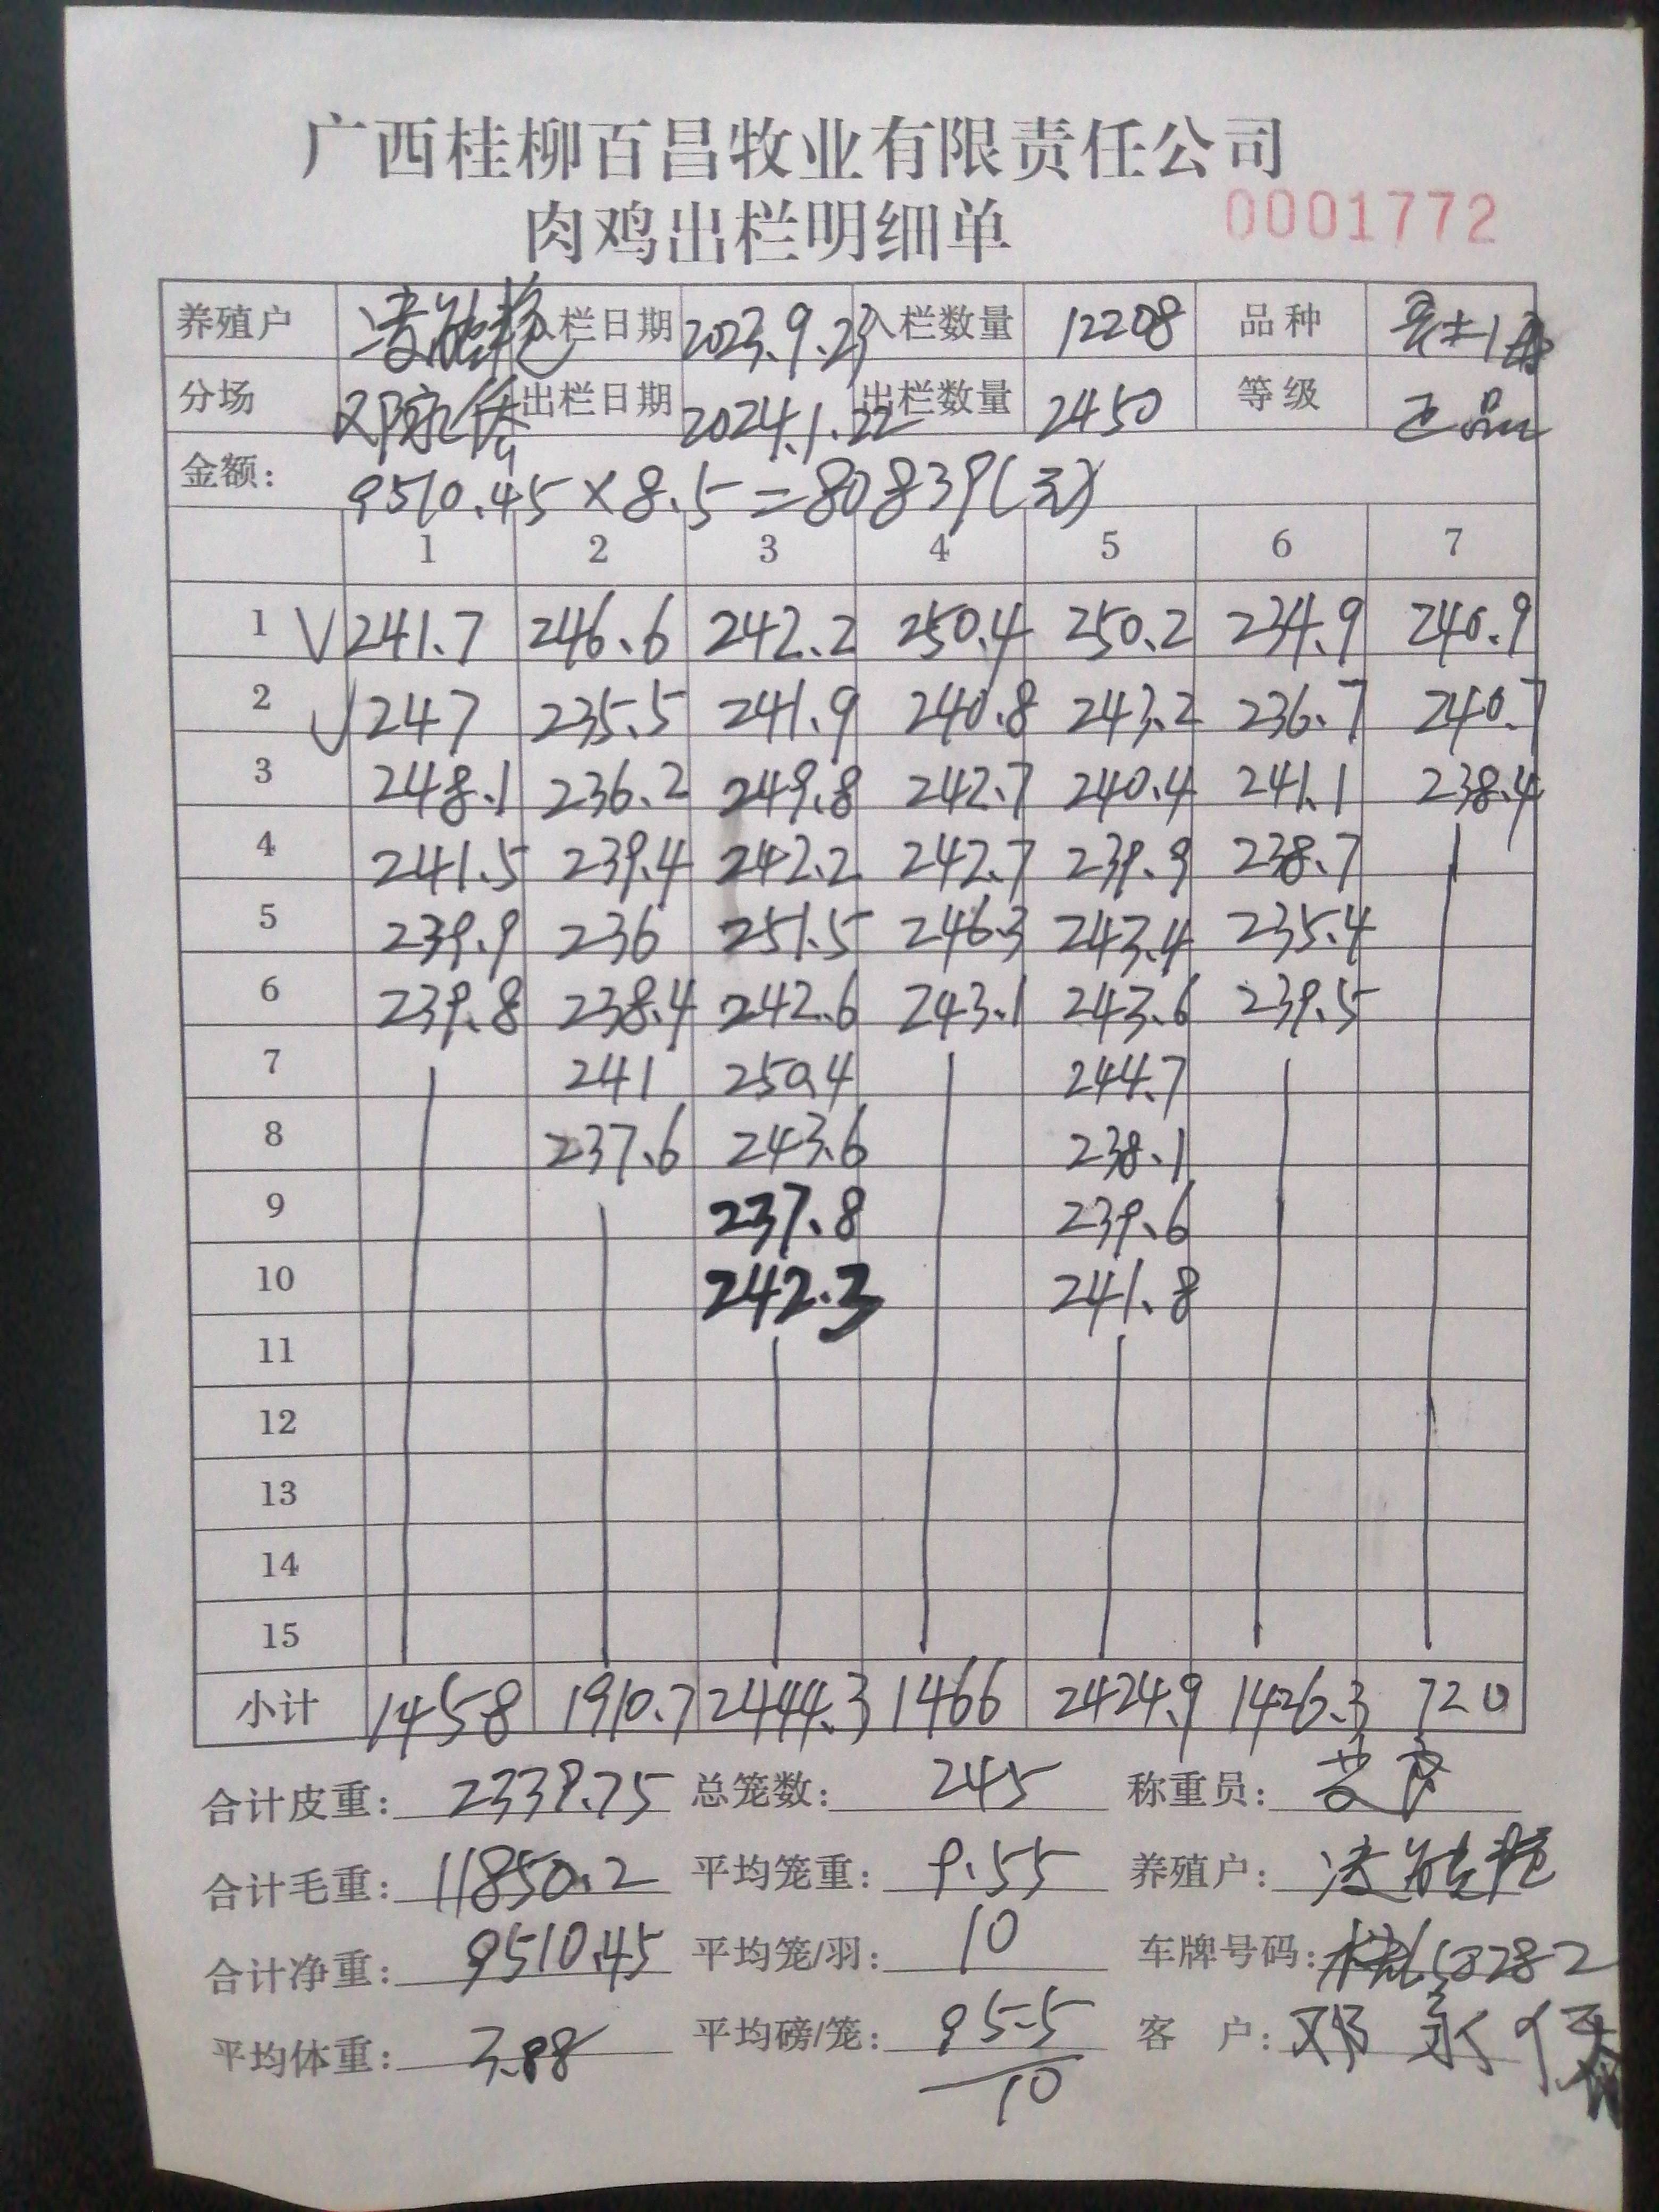 广西桂柳百昌牧业有限责任公司
肉鸡出栏明细单 0001772
养殖户 入栏日期 2023.9.23 入栏数量 12208 品种
分场 邓永 出栏日期 2024.1.22 出栏数量 2450 等级 正品
金额: 9510.45×8.5=80839(元)
1 2 3 4 5 6 7
1 √ 241.7 246.6 242.2 250.4 250.2 234.9 240.9
2 √ 247 235.5 241.9 240.8 243.2 236.7 240.7
3 248.1 236.2 249.8 242.7 240.4 241.1 238.4
4 241.5 239.4 242.2 242.7 239.9 238.7
5 239.9 236 251.5 246.3 243.4 235.4
6 239.8 238.4 242.6 243.1 243.6 239.5
7 241 250.4 244.7
8 237.6 243.6 238.1
9 237.8 239.6
10 242.3 241.8
11
12
13
14
15
小计 1458 1910.7 2444.3 1466 2424.9 1426.3 720
合计皮重: 2339.75 总笼数: 245 称重员:
合计毛重: 11850.2 平均笼重: 9.55 养殖户:
合计净重: 9510.45 平均笼/羽: 10 车牌号码:
平均体重: 3.88 平均磅/笼: 95.5 客 户: 邓永
10